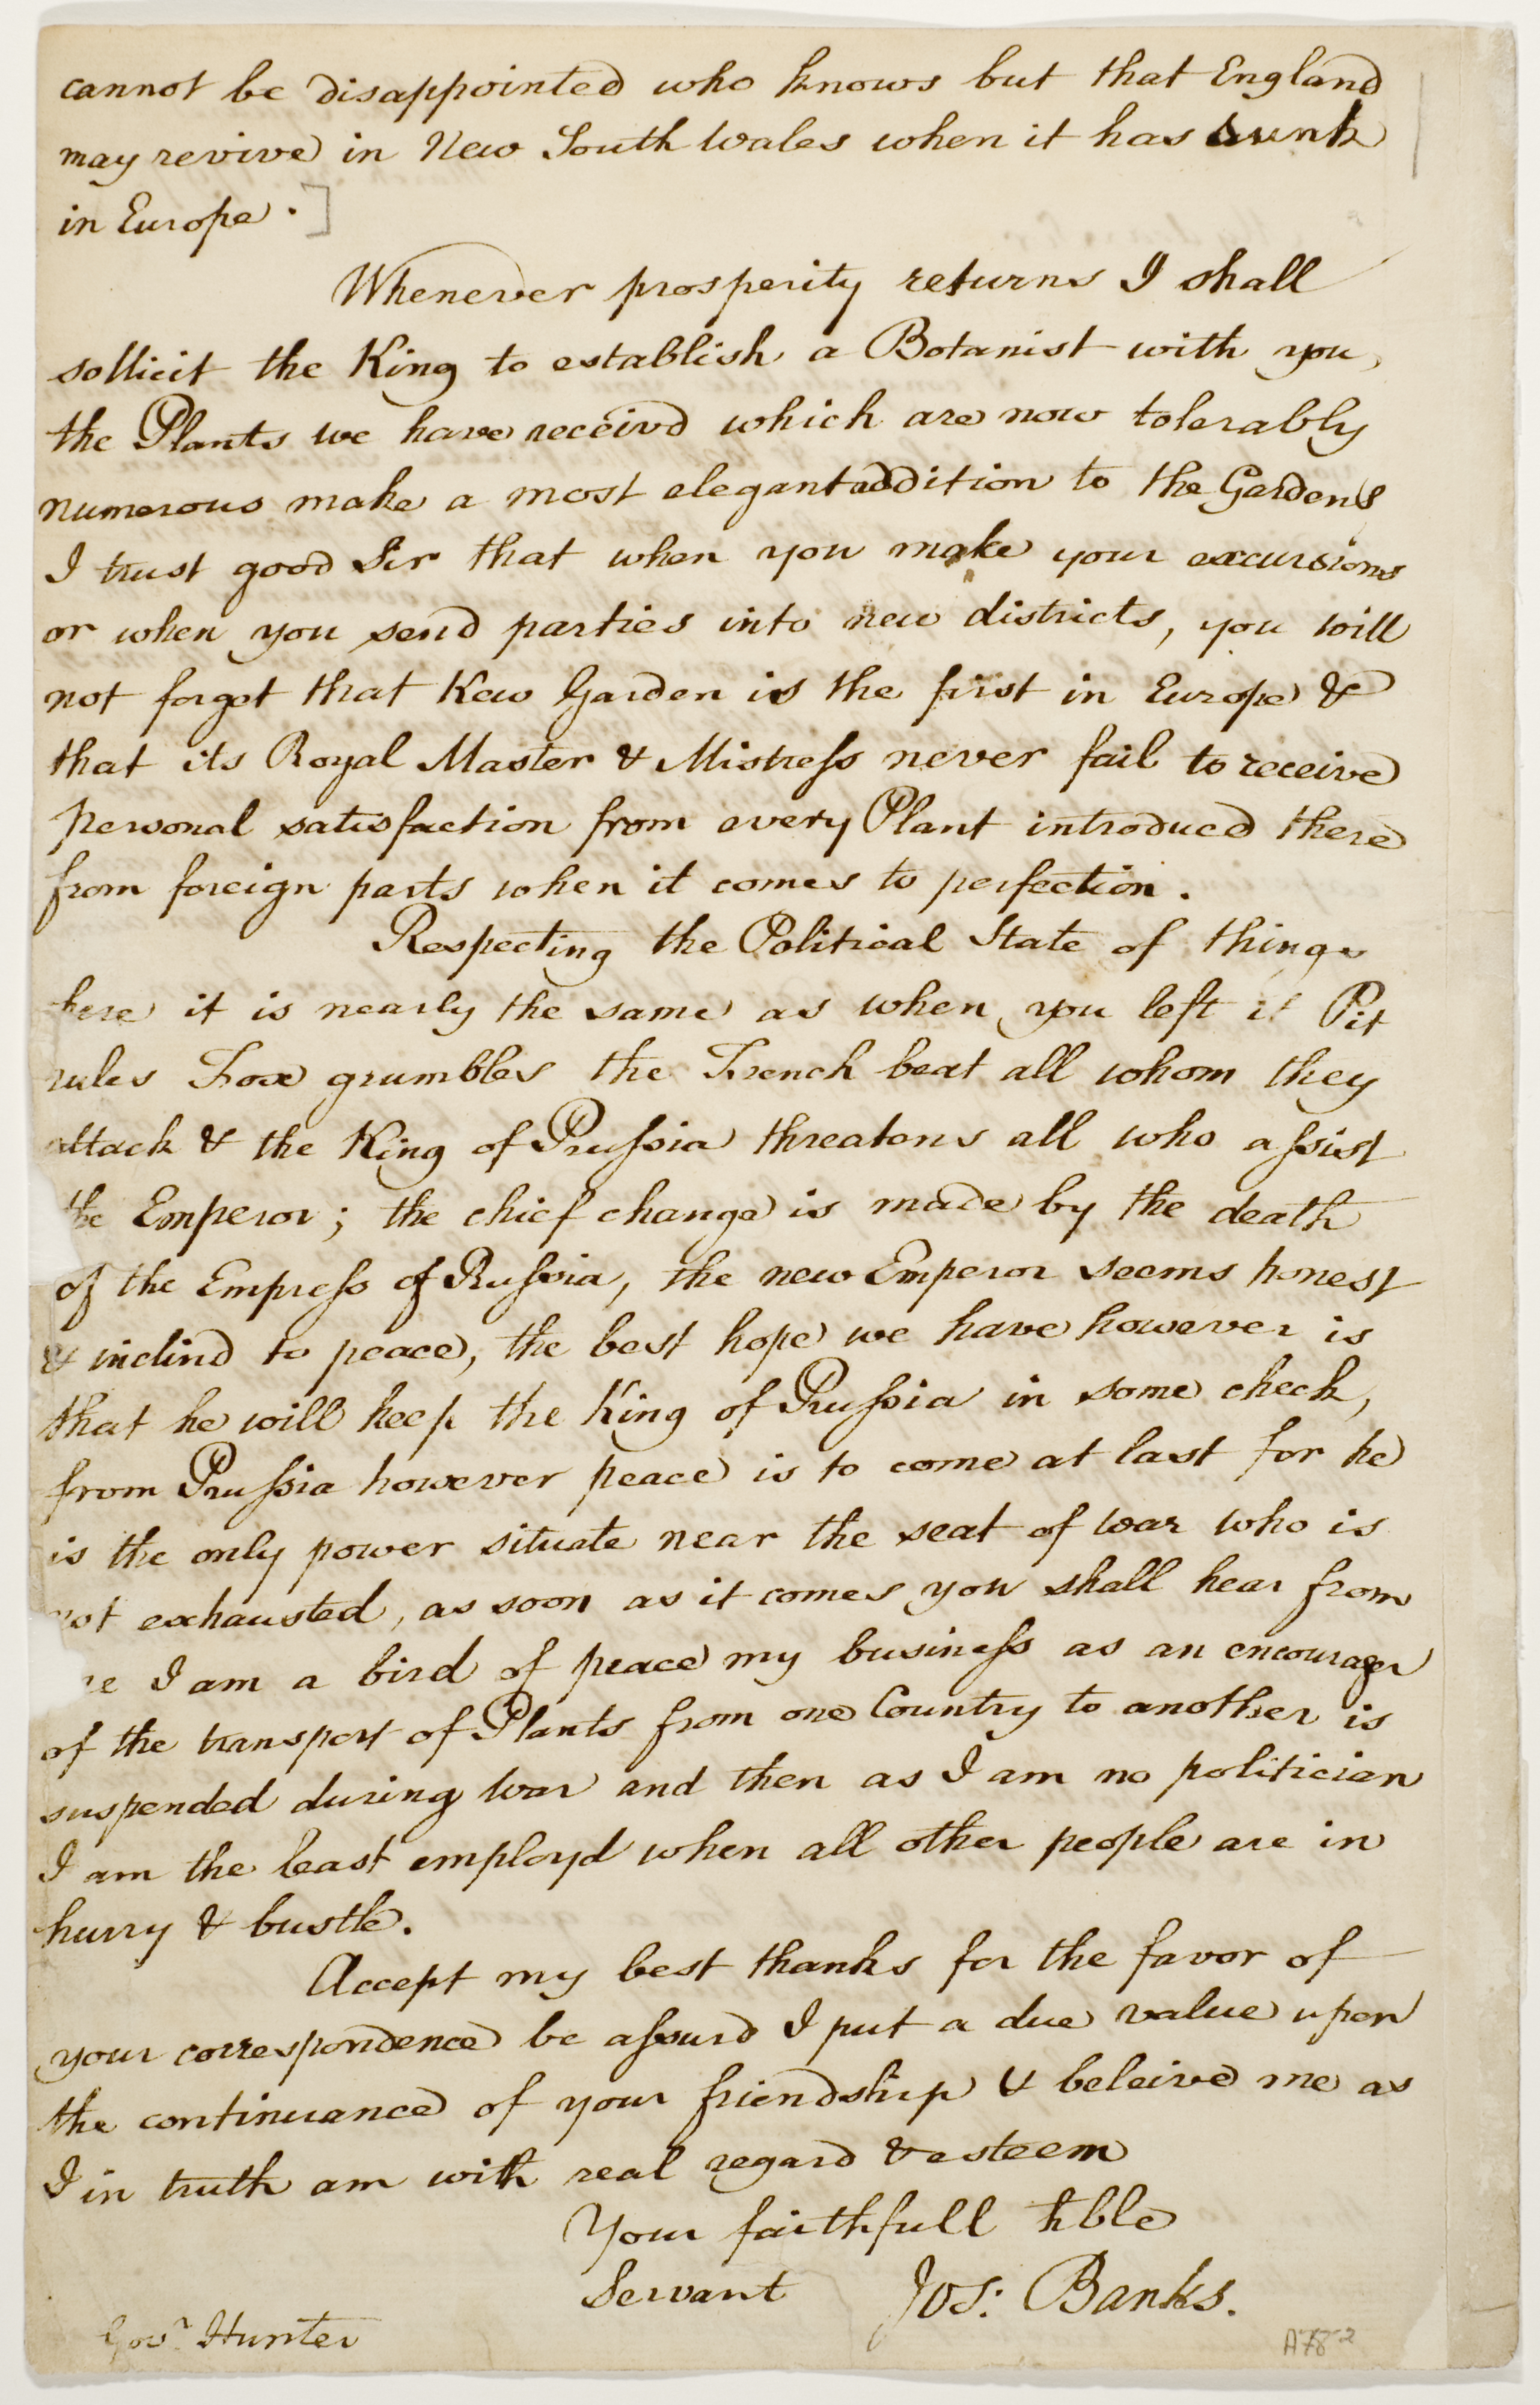 cannot be disappointed who knows but that England
may revive in New South Wales when it has sunk
in Europe.]
Whenever prosperity returns I shall
sollicit the King to establish a Botanist with you,
the Plants we have receivd which are now tolerably
numerous make a most elegant addition to the Gardens
I trust good Sir that when you make your excursions
or when you send parties into new districts, you will
not forget that Kew Garden is the first in Europe &
that its Royal Master & Mistress never fail to receive
personal satisfaction from every Plant introduced there
from foreign parts when it comes to perfection.
Respecting the Political State of things
here it is nearly the same as when you left it Pit
rules Fox grumbles the French beat all whom they
attack & the King of Prussia threatens all who assist
the Emperor; the chief change is made by the death
of the Empress of Russia, the new Emperor seems honest
& inclind to peace, the best hope we have however is
that he will keep the King of Prussia in some check,
from Prussia however peace is to come at last for he
is the only power situate near the seat of war who is
not exhausted, as soon as it comes you shall hear from
me I am a bird of peace my business as an encourager
of the transport of Plants from one Country to another is
suspended during war and then as I am no politician
I am the least employd when all other people are in
hurry & bustle.
Accept my best thanks for the favor of
your correspondence be assurd I put a due value upon
the continuance of your friendship & beleive me as
I in truth am with real regard & esteem
Your faithfull hble
Servant Jos: Banks.
Govr Hunter
A78-2